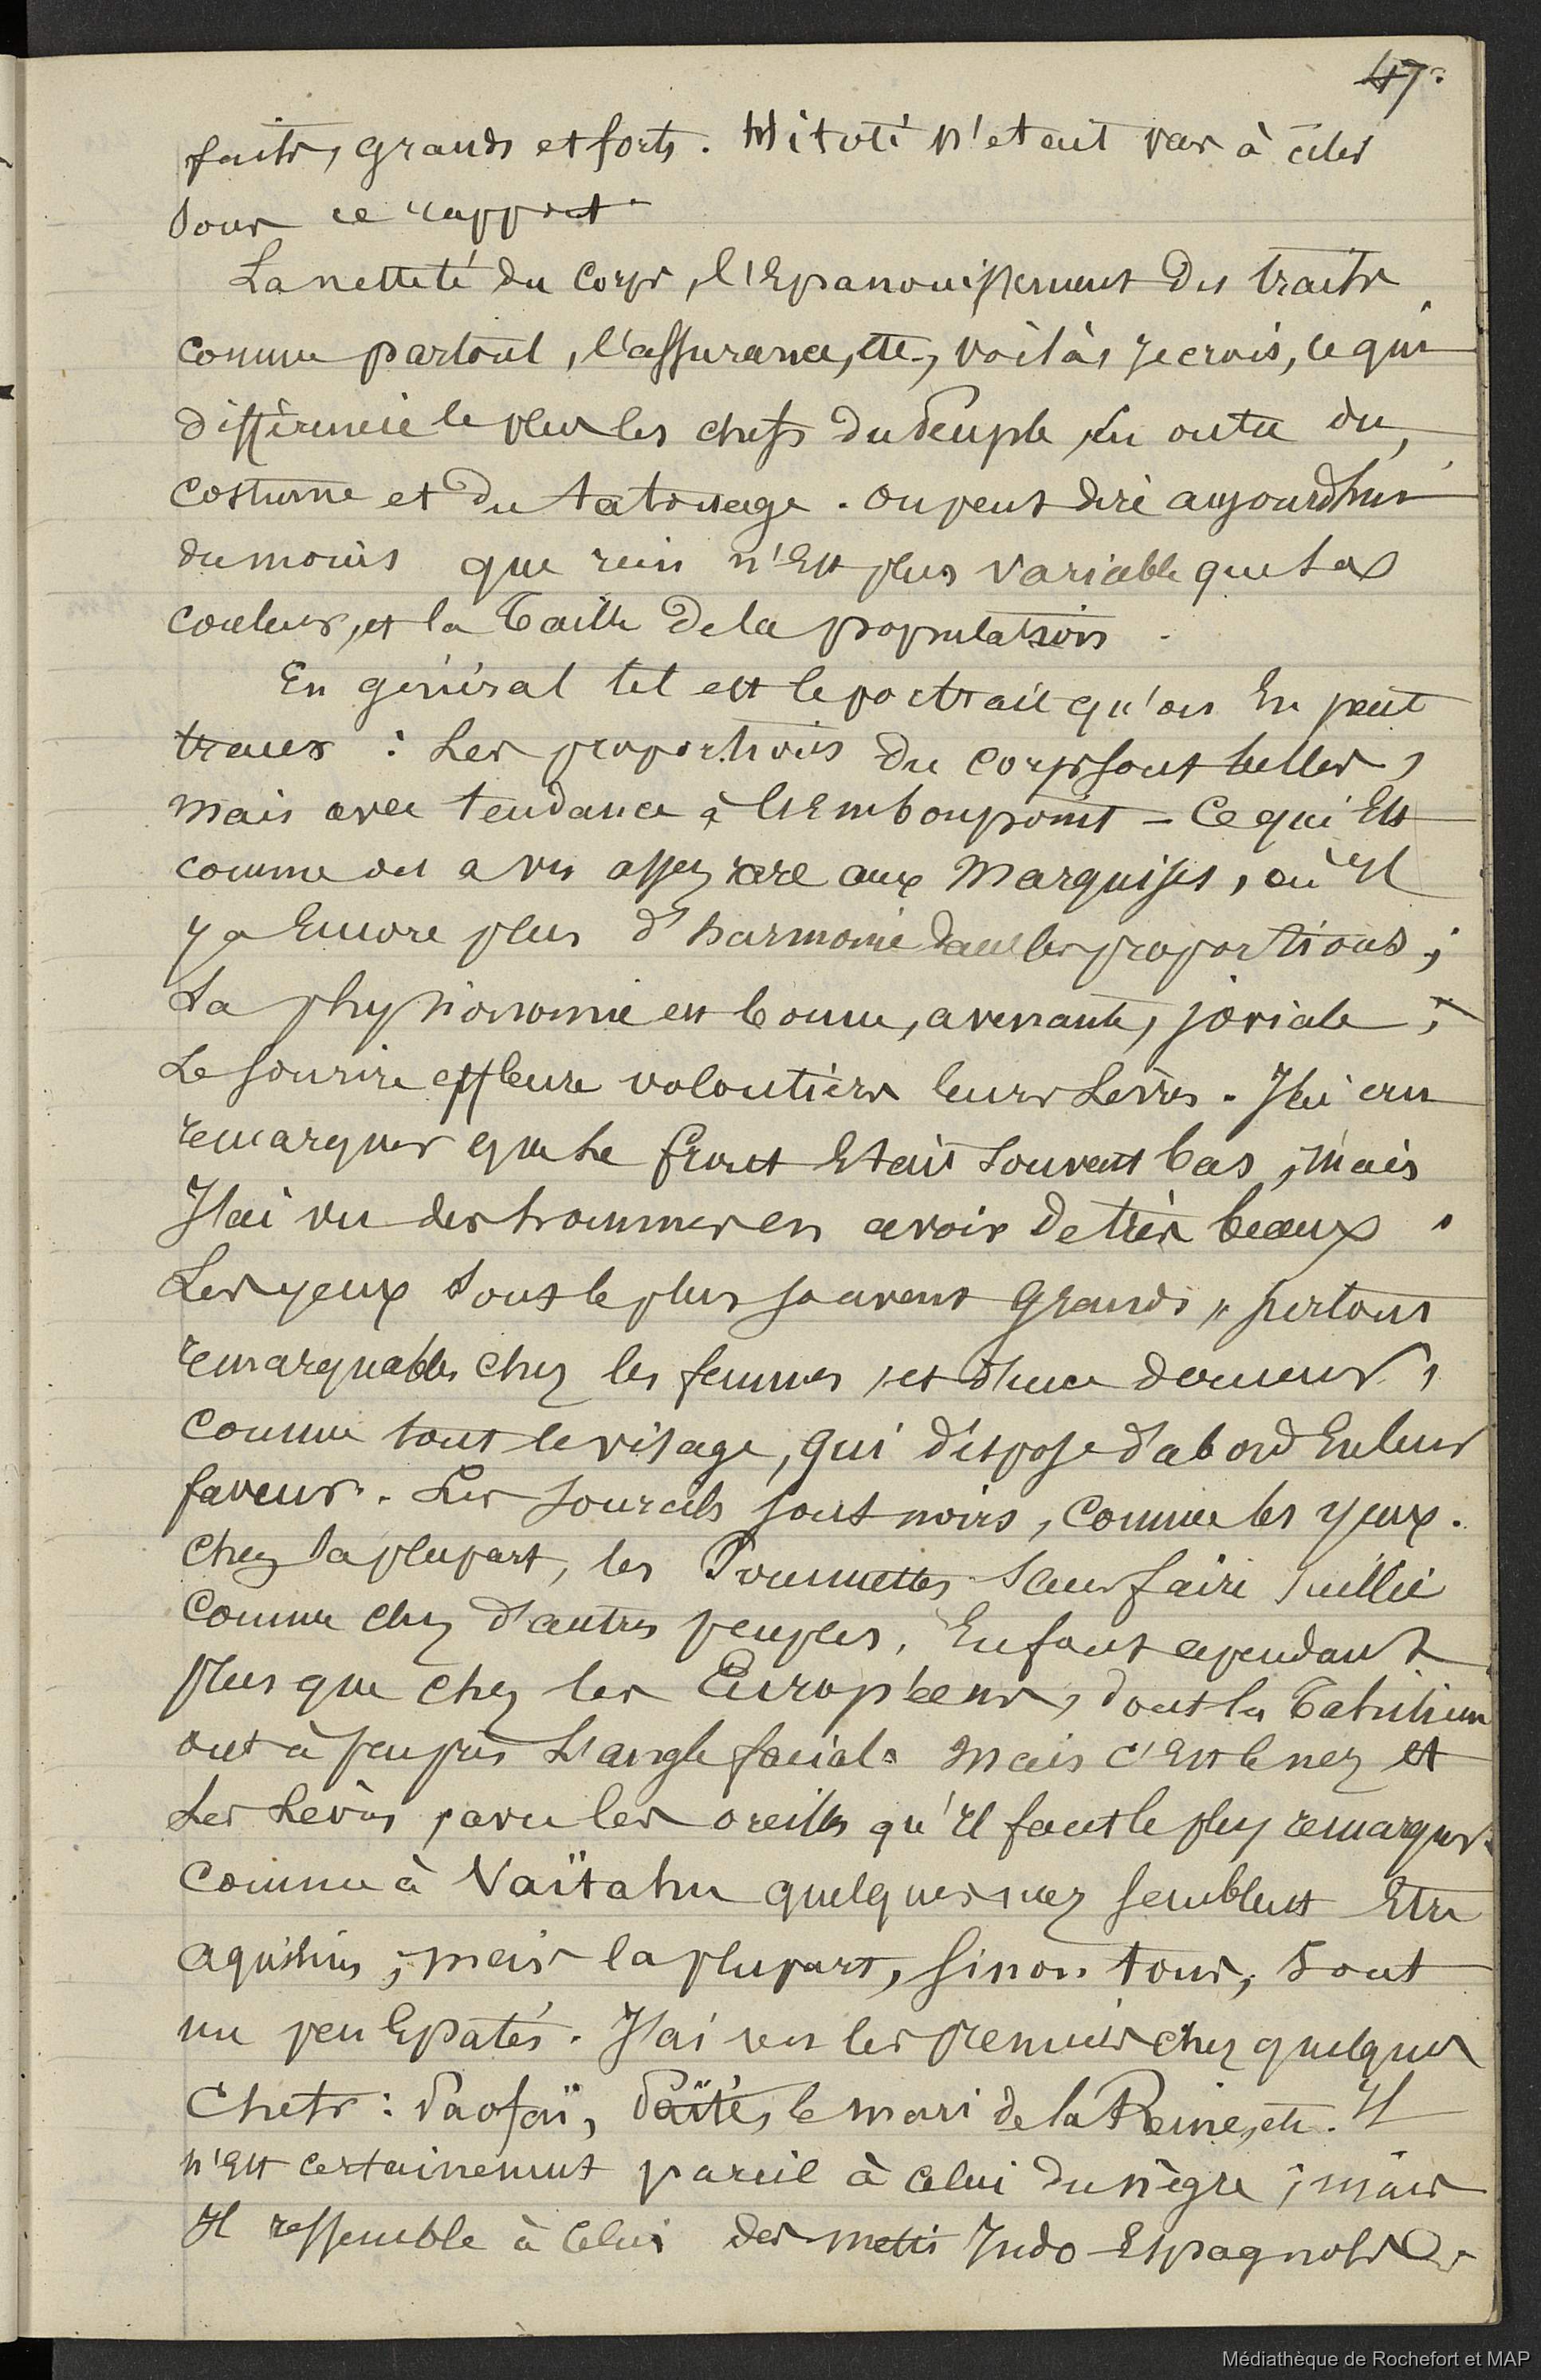 47.
faits, grands et forts. Hitoti n'etait pas à citer
sous ce rapport.
La netteté du corps, l'Epanouissement des traits
comme partout, l'assurance, etc, voilà, je crois, ce qui
différencie le plus les chefs du Peuple, En outre du
costume et du tatouage. On peut dire aujourdhui
du moins que rien n'Est plus variable que la
couleur, et la taille de la population.
En général tel est le portrait qu'on En peut
tracer : Les proportions du corps sont belles,
mais avec tendance à l'Embonpoint - Ce qui Est
comme on a vu assez rare aux Marquises, où Il
y a Encore plus d'harmonie dans les proportions ;
La physionomie est bonne, avenante, joviale ;
Le sourire effleure volontiers leurs Lèvres. J'ai cru
remarquer que le front Etait souvent bas, mais
J'ai vu des hommes en avoir de très beaux.
Les yeux sont le plus souvent grands, surtout
remarquables chez les femmes, et d'une douceur,
comme tout le visage, qui dispose d'abord En leur
faveur. Les sourcils sont noirs, comme les yeux.
Chez la plupart, les Pommettes sans faire saillie
comme chez d'autres peuples, En font cependant
plus que chez les Européens, dont les Tahitiens
ont à peu près L'angle facial. Mais c'Est le nez et
Les Lèvres, avec les oreilles qu'Il faut le plus remarquer.
Comme à Vaïtahu quelques nez semblent Etre
aquilins ; mais la plupart, sinon tous, sont
un peu Epatés. J'ai vu les premiers chez quelques
Chefs : Paofaï, Païté, le mari de la Reine, etc. Il
n'Est certainement pareil à celui du nègre ; mais
Il ressemble à celui des metis Indo-Espagnols